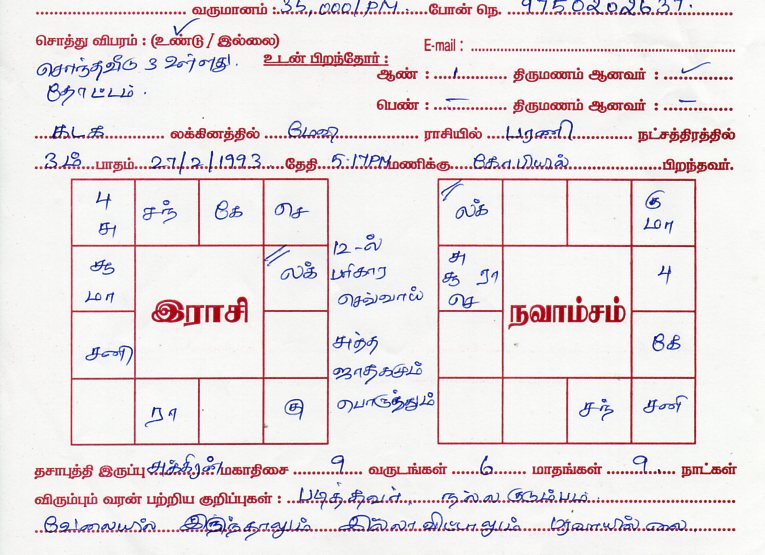 வருமானம் : 35,000/PM. போன் நெ. 9750202637.
சொத்து விபரம் : (உண்டு / இல்லை) E-mail :
சொந்தவீடு 3 உள்ளது. உடன் பிறந்தோர் :
ஆண் : 1 திருமணம் ஆனவர் : ✓
தோட்டம்.
பெண் : – திருமணம் ஆனவர் : –
கடக லக்கினத்தில் மேஷ ராசியில் பரணி நட்சத்திரத்தில்
3ம் பாதம் 27/2/1993 தேதி 5.17PM மணிக்கு கோபியில் பிறந்தவர்.
4 சு சந் கே செ
சூ மா லக்
இராசி
சனி
ரா கு
12-ல் பரிகார செவ்வாய்
சுத்த ஜாதகமும் பொருந்தும்
லக் கு மா
சு சூ ரா செ 4
நவாம்சம்
கே
சந் சனி
தசாபுத்தி இருப்பு சுக்கிரன் மகாதிசை 9 வருடங்கள் 6 மாதங்கள் 9 நாட்கள்
விரும்பும் வரன் பற்றிய குறிப்புகள் : படித்தவர், நல்ல குடும்பம்
வேலையில் இருந்தாலும் இல்லாவிட்டாலும் பரவாயில்லை.